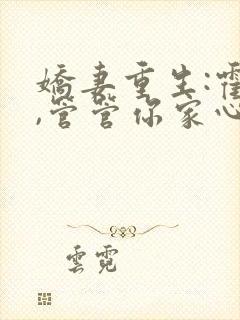 嬌妻重生:霍
,管管你家心
雲霓